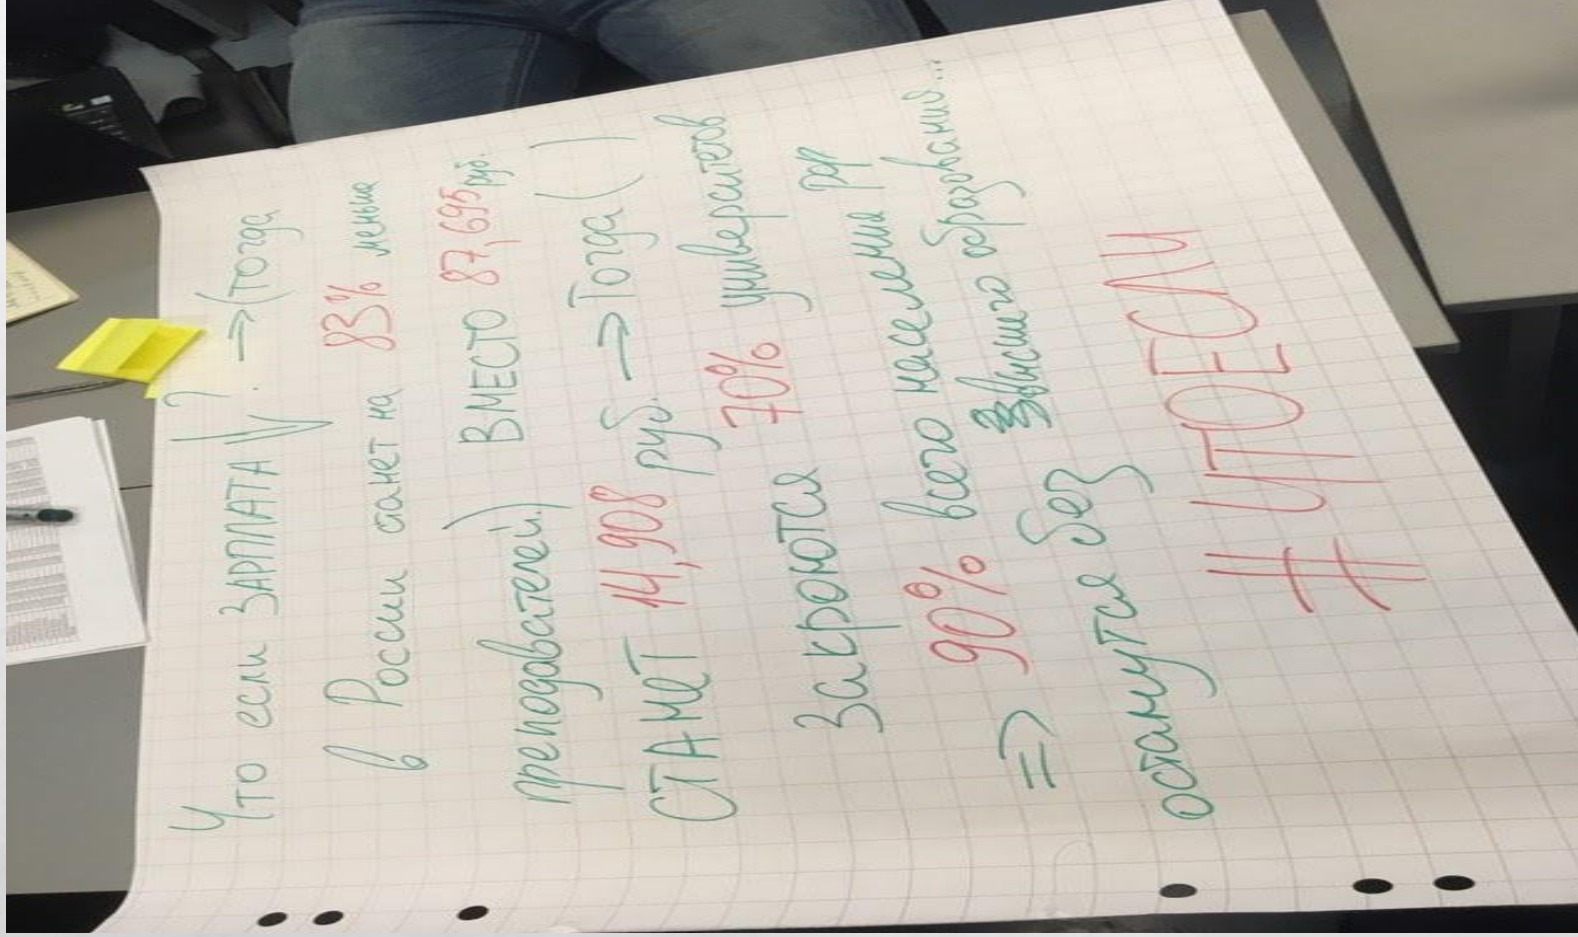 Что если ЗАРПЛАТА ↓? → (тогда
в России станет на 83% меньше
преподавателей.) ВМЕСТО 87,695 руб.
СТАНЕТ 14,908 руб. → Тогда ( )
Закроются 70% университетов
=> 90% всего населения РФ
останутся без высшего образования...
# ЧТОЕСЛИ